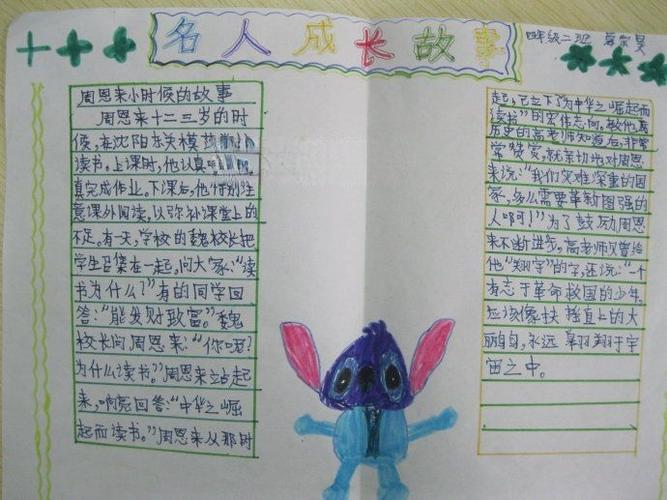 名人成长故事
四年级二班
周恩来小时候的故事
周恩来十二三岁的时
候，在沈阳东关模范
读书。上课时，他认真
真完成作业。下课后，他特别注
意课外阅读，以弥补课堂上的
不足。有一天，学校的魏校长把
学生召集在一起，问大家：“读
书为什么？”有的同学回
答：“能发财致富。”魏
校长问周恩来：“你呢？
为什么读书。”周恩来站起
来，响亮回答：“中华之崛
起而读书。”周恩来从那时
起，已立下了为中华之崛起而
读书”的宏伟志向。教他
历史的高老师知道后，非常
常赞赏，就亲切地对周恩
来说：“我们灾难深重的国
家，多么需要革新图强的
人啊！”为了鼓励周恩
来不断进步，高老师见曾给
他“翔宇”的字，还说：“一个
有志于革命救国的少年。
应该像扶摇直上的大
鹏鸟，永远翱翔于宇
宙之中。